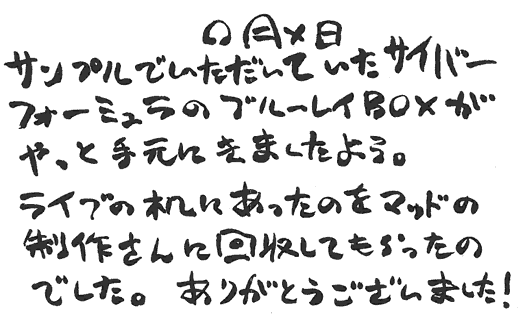 ○月×日
サンプルでいただいていたサイバー
フォーミュラのブルーレイBOXが
やっと手元にきましたよう。
ライブの机にあったのをマッドの
制作さんに回収してもらったの
でした。ありがとうございました!